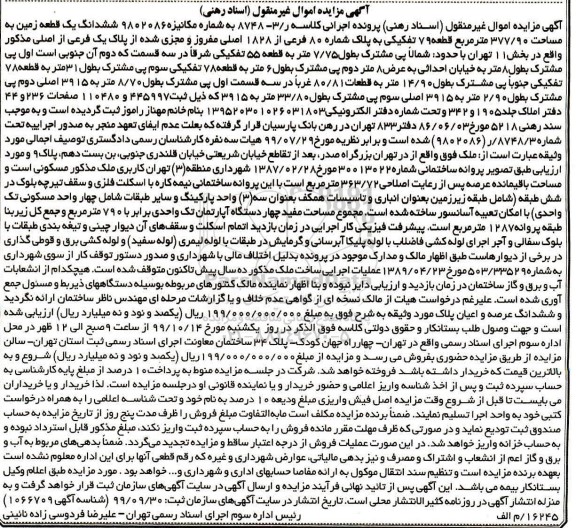 آگهی مزایده اموال غیرمنقول (اسناد رهنی)
آگهی مزایده اموال غیرمنقول (اسناد رهنی) پرونده اجرائی کلاسه ر/۳-۸۷۴۸ به شماره مکانیزه ۹۸۰۲۰۸۶ ششدانگ یک قطعه زمین به
مساحت ۳۷۷/۹۰ مترمربع قطعه ۷۹ تفکیکی به پلاک شماره ۸۰ فرعی از ۱۸۲۸ اصلی مفروز و مجزی شده از پلاک یک فرعی از اصلی مذکور
واقع در بخش ۱۱ تهران با حدود: شمالاً پی مشترک بطول ۷/۷۵ متر به قطعه ۵۵ تفکیکی شرقاً در سه قسمت که دوم آن جنوبی است اول پی
مشترک بطول ۸ متر به خیابان احداثی به عرض ۸ متر دوم پی مشترک بطول ۶ متر به قطعه ۷۸ تفکیکی سوم پی مشترک بطول ۳۱ متر به قطعه ۷۸
تفکیکی جنوباً پی مشترک بطول ۱۴/۹۰ متر به قطعات ۸۰/۸۱ غرباً در سه قسمت اول پی مشترک بطول ۸/۷۰ متر به ۳۹۱۵ اصلی دوم پی
مشترک بطول ۲/۹۰ متر به ۳۹۱۵ اصلی سوم پی مشترک بطول ۳۳/۸۰ متر به ۳۹۱۵ که ذیل ثبت ۴۴۵۹۹۷ و ۱۱۰۴۸۰ صفحات ۲۳۶ و ۴۴
دفتر املاک جلد ۱۹۰۵ و ۳۴۲ و تحت شماره دفتر الکترونیکی ۱۳۹۵۲۰۳۰۱۰۲۶۰۳۱۸۰۳ بنام خانم مهناز راموز ثبت گردیده است و به موجب
سند رهنی ۵۲۱۸ مورخ ۸۶/۰۶/۰۳ دفتر ۸۳۳ تهران در رهن بانک پارسیان قرار گرفته که بعلت عدم ایفای تعهد منجر به صدور اجراییه تحت
شماره ۸۷۴۸/۳/ر (۹۸۰۲۰۸۶) شده است و برابر نظریه مورخ ۹۹/۰۷/۲۹ هیات سه نفره کارشناسان رسمی دادگستری توصیف اجمالی مورد
وثیقه عبارت است از: ملک فوق واقع در تهران بزرگراه صدر، بعد از تقاطع خیابان شریعتی خیابان قلندری جنوبی، بن بست دهم، پلاک ۹ و مورد
ارزیابی طبق تصویر پروانه ساختمانی شماره ۳۰۰۱۳۰۲۲ مورخ ۱۳۸۷/۰۲/۲۸ شهرداری منطقه (۳) تهران کاربری ملک مذکور مسکونی است و
مساحت باقیمانده عرصه پس از رعایت اصلاحی مترمربع است با این پروانه ساختمانی نیمه کاره با اسکلت فلزی و سقف تیرچه بلوک در
شش طبقه (شامل طبقه زیرزمین بعنوان انباری همکف بعنوان سه (۳) واحد پارکینگ و سایر طبقات شامل چهار واحد مسکونی تک
واحدی) با امکان تعبیه آسانسور ساخته شده است مجموع مساحت مفید چهار دستگاه آپارتمان تک واحدی برابر با ۷۹۰ مترمربع و جمع کل زیربنا
طبقه پروانه ۱۲۸۷ مترمربع است. پیشرفت فیزیکی کار اجرایی در زمان بازدید اتمام اسکلت و سقف‌های آن دیوار چینی و تیغه بندی طبقات با
بلوک سفالی و آجر اجرای لوله کشی فاضلاب با لوله پلیکا آبرسانی و گرمایش در طبقات با لوله پلیمری (لوله سفید) و لوله کشی برق و قوطی گذاری
در برخی از دیوارهاست طبق اظهار مالک و مدارک موجود در پرونده بدلیل اختلاف مالی با شهرداری و صدور دستور توقف کار از سوی شهرداری
به شماره ۵۰۳/۳۳۵۲۹ مورخ ۱۳۸۹/۰۴/۲۳ عملیات اجرایی ساخت ملک مذکور ده سال پیش تاکنون متوقف شده است. هیچکدام از انشعابات
آب و برق و گاز ساختمان در زمان بازدید و ارزیابی دایر نبوده و بنا اظهار نماینده مالک کنتورهای مربوطه بوسیله دستگاههای ذیربط و مسئول جمع
آوری شده است. علیرغم درخواست هیات از مالک نسخه ای از گواهی عدم خلاف و یا گزارشات مرحله ای مهندس ناظر ساختمان ارائه نگردید
و ششدانگ عرصه و اعیان پلاک مورد وثیقه به شرح فوق به مبلغ ۱۹۹/۰۰۰/۰۰۰/۰۰۰ ریال (یکصد و نود و نه میلیارد ریال) ارزیابی شده
است و جهت وصول طلب بستانکار و حقوق دولتی کلاسه فوق الذکر در روز یکشنبه مورخ ۹۹/۱۰/۱۴ از ساعت ۹ صبح الی ۱۲ ظهر در محل
اداره سوم اجرای اسناد رسمی واقع در تهران- چهارراه جهان کودک- پلاک ۳۴ ساختمان معاونت اجرای اسناد رسمی ثبت استان تهران- سالن
مزایده از طریق مزایده حضوری بفروش می رسد و مزایده از مبلغ ۱۹۹/۰۰۰/۰۰۰/۰۰۰ ریال (یکصد و نود و نه میلیارد ریال) شروع و به
بالاترین قیمت که خریدار داشته باشد فروخته خواهد شد. شرکت در جلسه مزایده منوط به پرداخت ۱۰ درصد از مبلغ پایه کارشناسی به
حساب سپرده ثبت و پس از اخذ شناسه واریز اعلامی و حضور خریدار و یا نماینده قانونی او درجلسه مزایده است. لذا خریدار و یا خریداران
می بایست تا قبل از شروع وقت مزایده اصل فیش واریزی مبلغ ودیعه ۱۰ درصد به نام خود و تحت شناسه اعلامی را به همراه درخواست
کتبی خود به واحد اجرا تسلیم نمایند. ضمناً برنده مزایده مکلف است مابه‌التفاوت مبلغ فروش را ظرف مدت پنج روز از تاریخ مزایده به حساب
صندوق ثبت تودیع نماید و در صورتی که ظرف مهلت مقرر مانده فروش را به حساب سپرده ثبت واریز نکند، مبلغ مذکور قابل استرداد نبوده و
به حساب خزانه واریز خواهد شد. در این صورت عملیات فروش از درجه اعتبار ساقط و مزایده تجدید می‌گردد. ضمناً بدهی‌های مربوط به آب و
برق و گاز اعم از انشعاب و اشتراک و مصرف و نیز بدهی مالیاتی، عوارض شهرداری و غیره که رقم قطعی آنها برای این اداره معلوم نشده است
بعهده برنده مزایده است و تنظیم سند انتقال موکول به ارائه مفاصا حسابهای اداری و شهرداری و... خواهد بود. مورد مزایده طبق اعلام وکیل
بستانکار بیمه می باشد. این آگهی پس از تائید نهائی فرآیند مزایده و ارسال آگهی در سایت آگهی‌های سازمان ثبت قرار خواهد گرفت و به
منزله انتشار آگهی در روزنامه کثیرالانتشار محلی است. تاریخ انتشار در سایت آگهی‌های سازمان ثبت: ۹۹/۰۹/۳۰ (شناسه آگهی ۱۰۶۶۷۰۹)
۱۶۲۴۵/م الف رئیس اداره سوم اجرای اسناد رسمی تهران- علیرضا فردوسی زاده نائینی